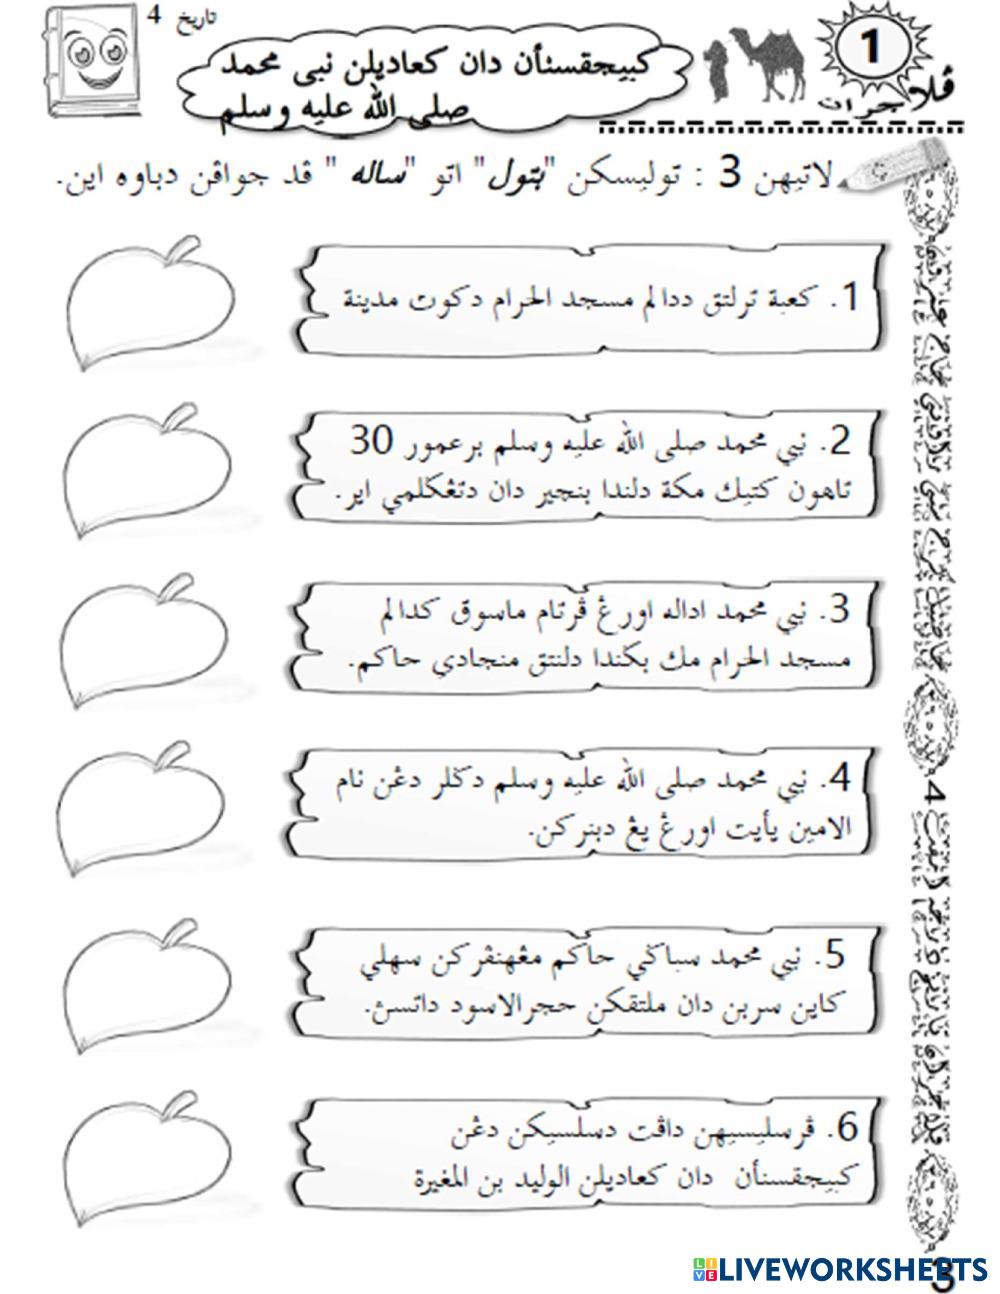 تاريخ 4
كبيجقسنأن دان كعاديلن نبي محمد
صلى الله عليه وسلم
1
ڤلاجرن
لاتيهن 3 : توليسكن "بتول" اتو "ساله" ڤد جواڤن دباوه اين.
1. كعبة ترلتق ددالم مسجد الحرام دكوت مدينة
2. نبي محمد صلى الله عليه وسلم برعمور 30
تاهون كتيك مكة دلندا بنجير دان دتڠݢلمي اير.
3. نبي محمد اداله اورڠ ڤرتام ماسوق كدالم
مسجد الحرام مك بݢيندا دلنتق منجادي حاكم.
4. نبي محمد صلى الله عليه وسلم دݢلر دڠن نام
الامين يأيت اورڠ يڠ دبنركن.
5. نبي محمد سباݢي حاكم مڠهمڤركن سهلي
كاين سربن دان ملتقكن حجرالاسود داتسڽ.
6. ڤرسليسيهن داڤت دسلسيكن دڠن
كبيجقسنأن دان كعاديلن الوليد بن المغيرة
3
LIVEWORKSHEETS